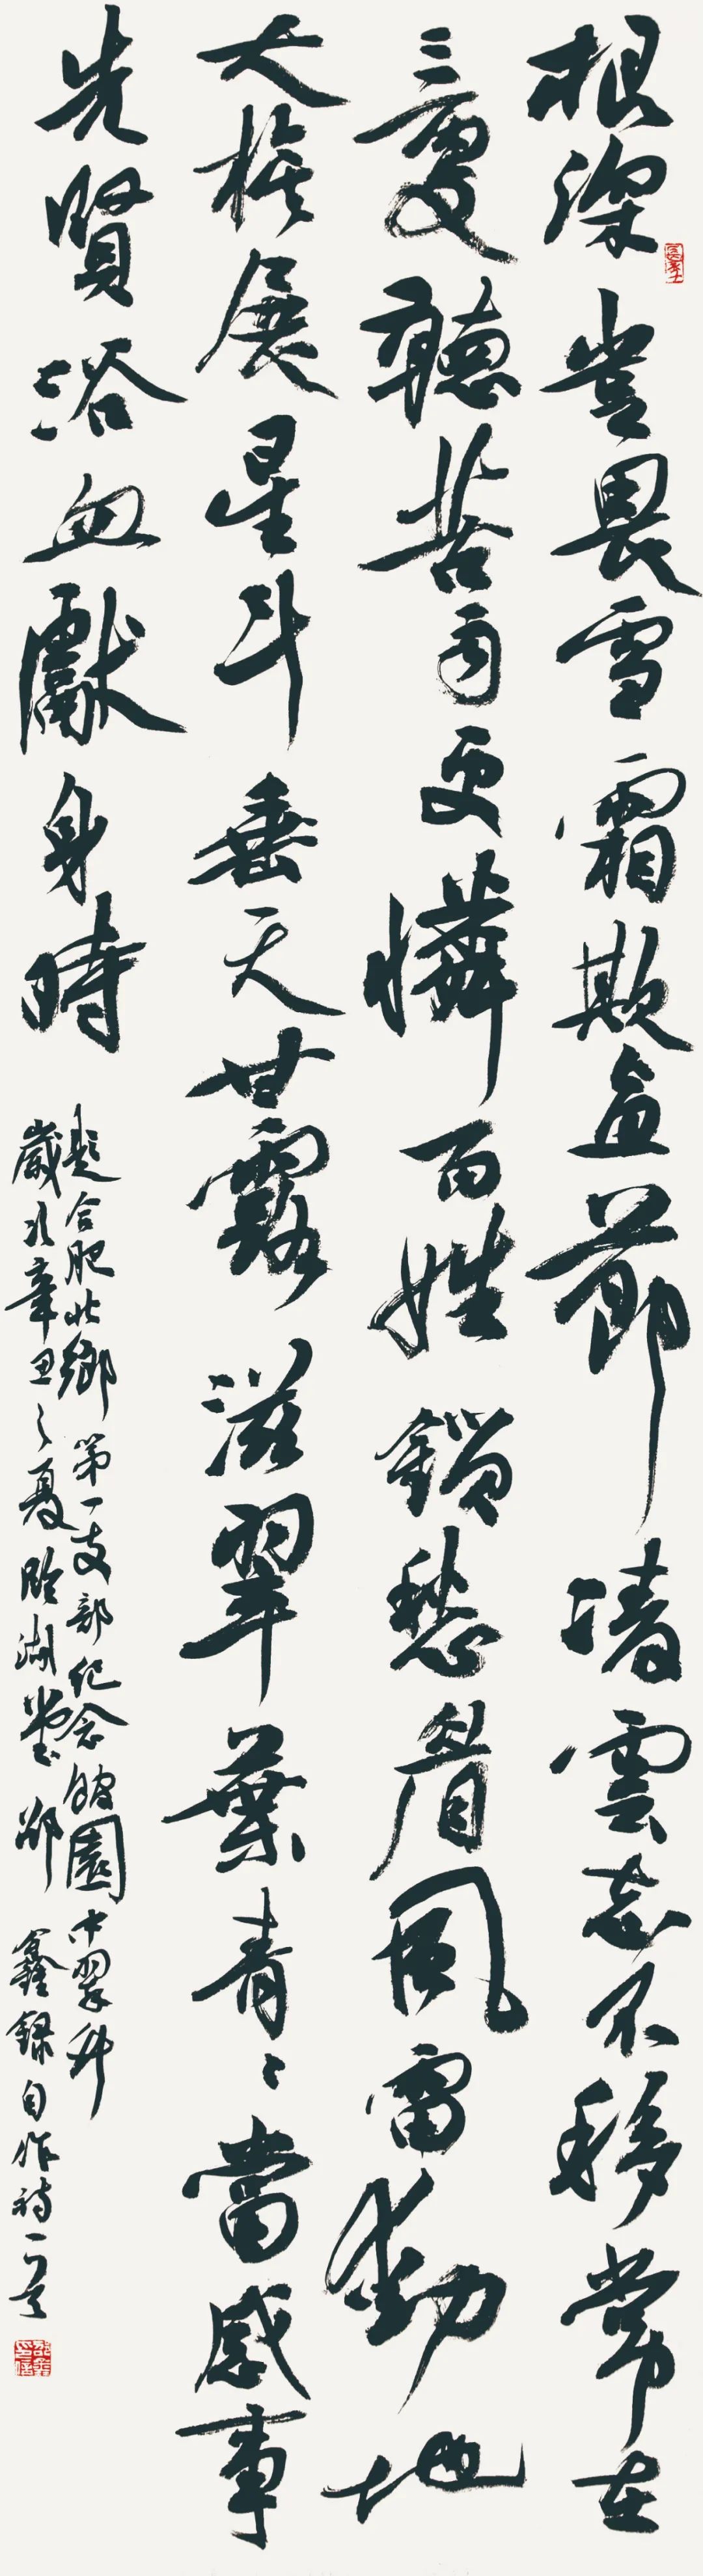 根深豈畏雪霜欺直節凌雲志不移常在
三更聽苦雨更憐百姓鎖愁眉風雷動地
大旗展星斗垂天甘露滋翠葉青々當感事
先賢浴血獻身時
題合肥北鄉第一支部紀念館園中翠竹
歲次辛丑之夏臨湖堂鑫録自作詩一首